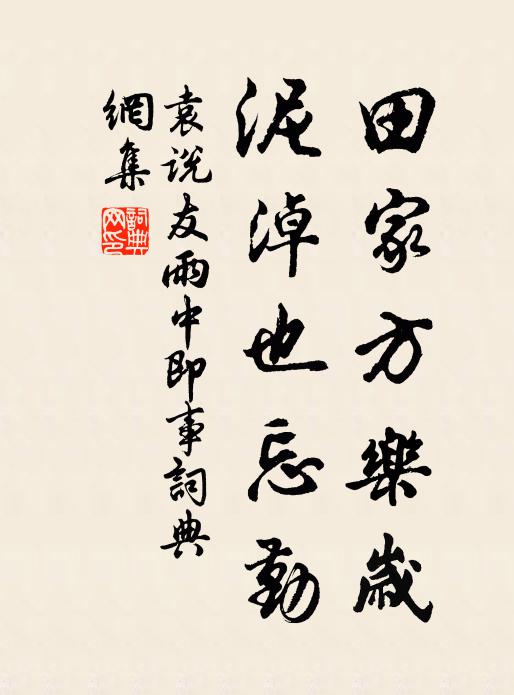 田家方樂歲
泥淖也忘勤
袁説友雨中即事詞典
網集
詞典
网印